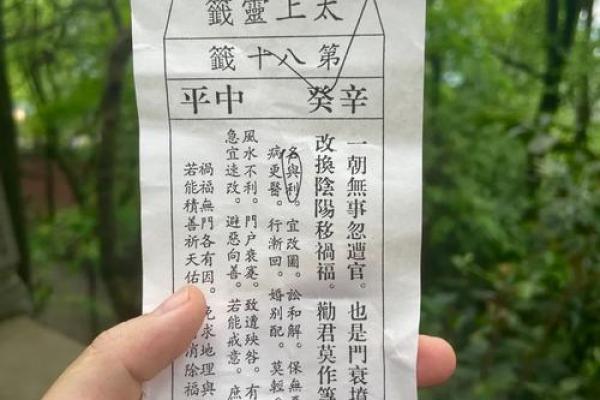 太上靈籤
第八十籤
辛癸 中平
一朝無事忽遭官。也是門衰墳
改換陰陽移禍福。勸君莫作等
名與利。宜改圖。訟和解。保無
病更醫。行漸回。婚別配。莫輕
風水不利。門户衰蹇。致遭殃咎。有
急宜速改。避惡向善。若能戒意。庶
禍福無門各有因。求地理與
若能積善祈天佑消除福